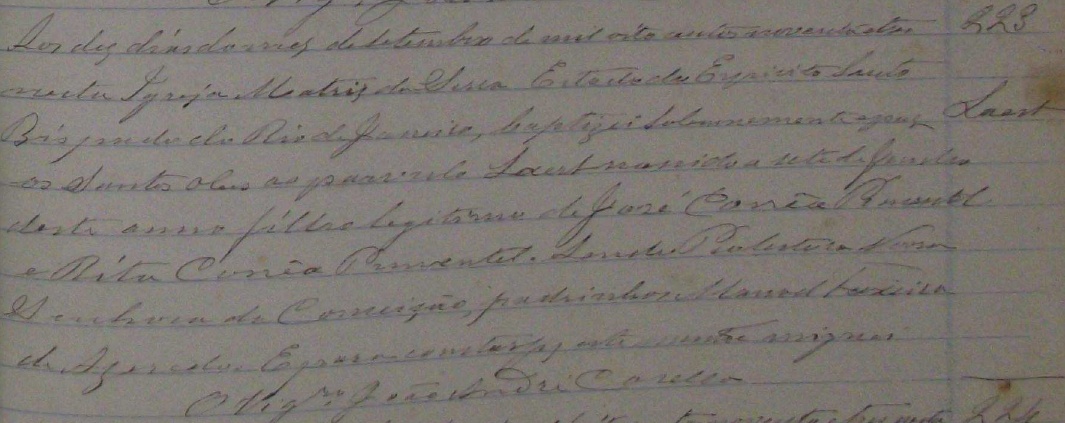 Aos dez dias do mez de Setembro de mil oito centos noventa e tres 223
nesta Igreja Matriz da Serra Estado do Espirito Santo
Bispado do Rio de Janeiro, baptizei solemnemente e puz Laert
os Santos oleos ao parvulo Laert nascido a sete de Janeiro
deste anno filho legitimo de José Corrêa Pimentel
e Rita Corrêa Pimentel. Sendo Protectora Nossa
Senhora da Conceição, padrinhos Manoel Teixeira
de Azeredo. E para constar fiz este assento e assignei
O Vigrº João André Casella
noventa e tres nesta 224